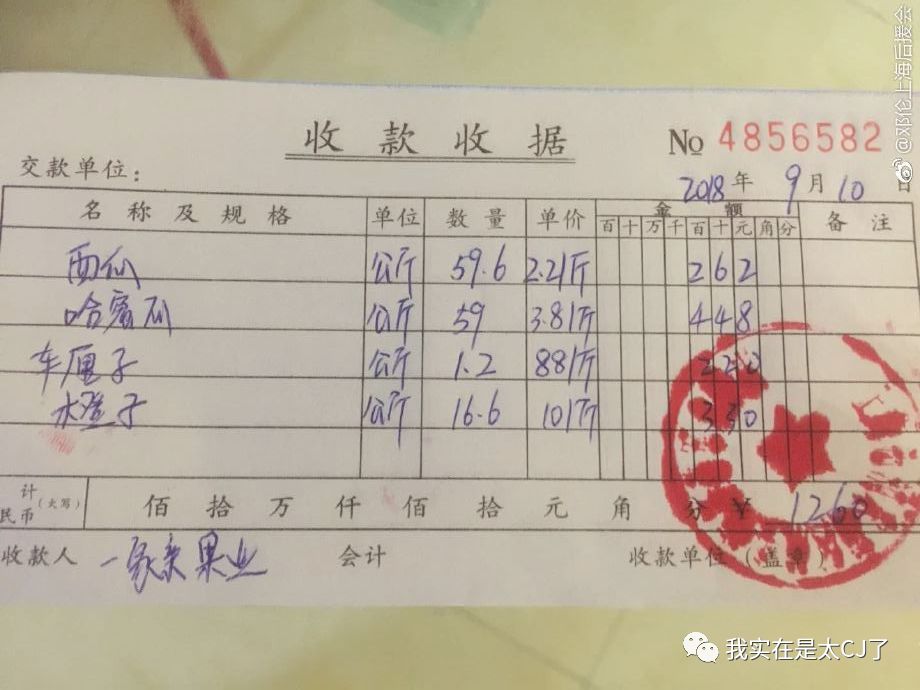 @邓伦上海后援会
收款收据 No 4856582
交款单位: 2018年9月10日
名称及规格 单位 数量 单价 金额 备注
百十万千百十元角分
西仙 公斤 59.6 2.2/斤 262
哈蜜瓜 公斤 59 3.8/斤 448
车厘子 公斤 1.2 88/斤 220
水橙子 公斤 16.6 10/斤 330
计
民币(大写) 佰拾万仟佰拾元角分¥ 1260
收款人 一家亲果业 会计 收款单位(盖章)
我实在是太CJ了